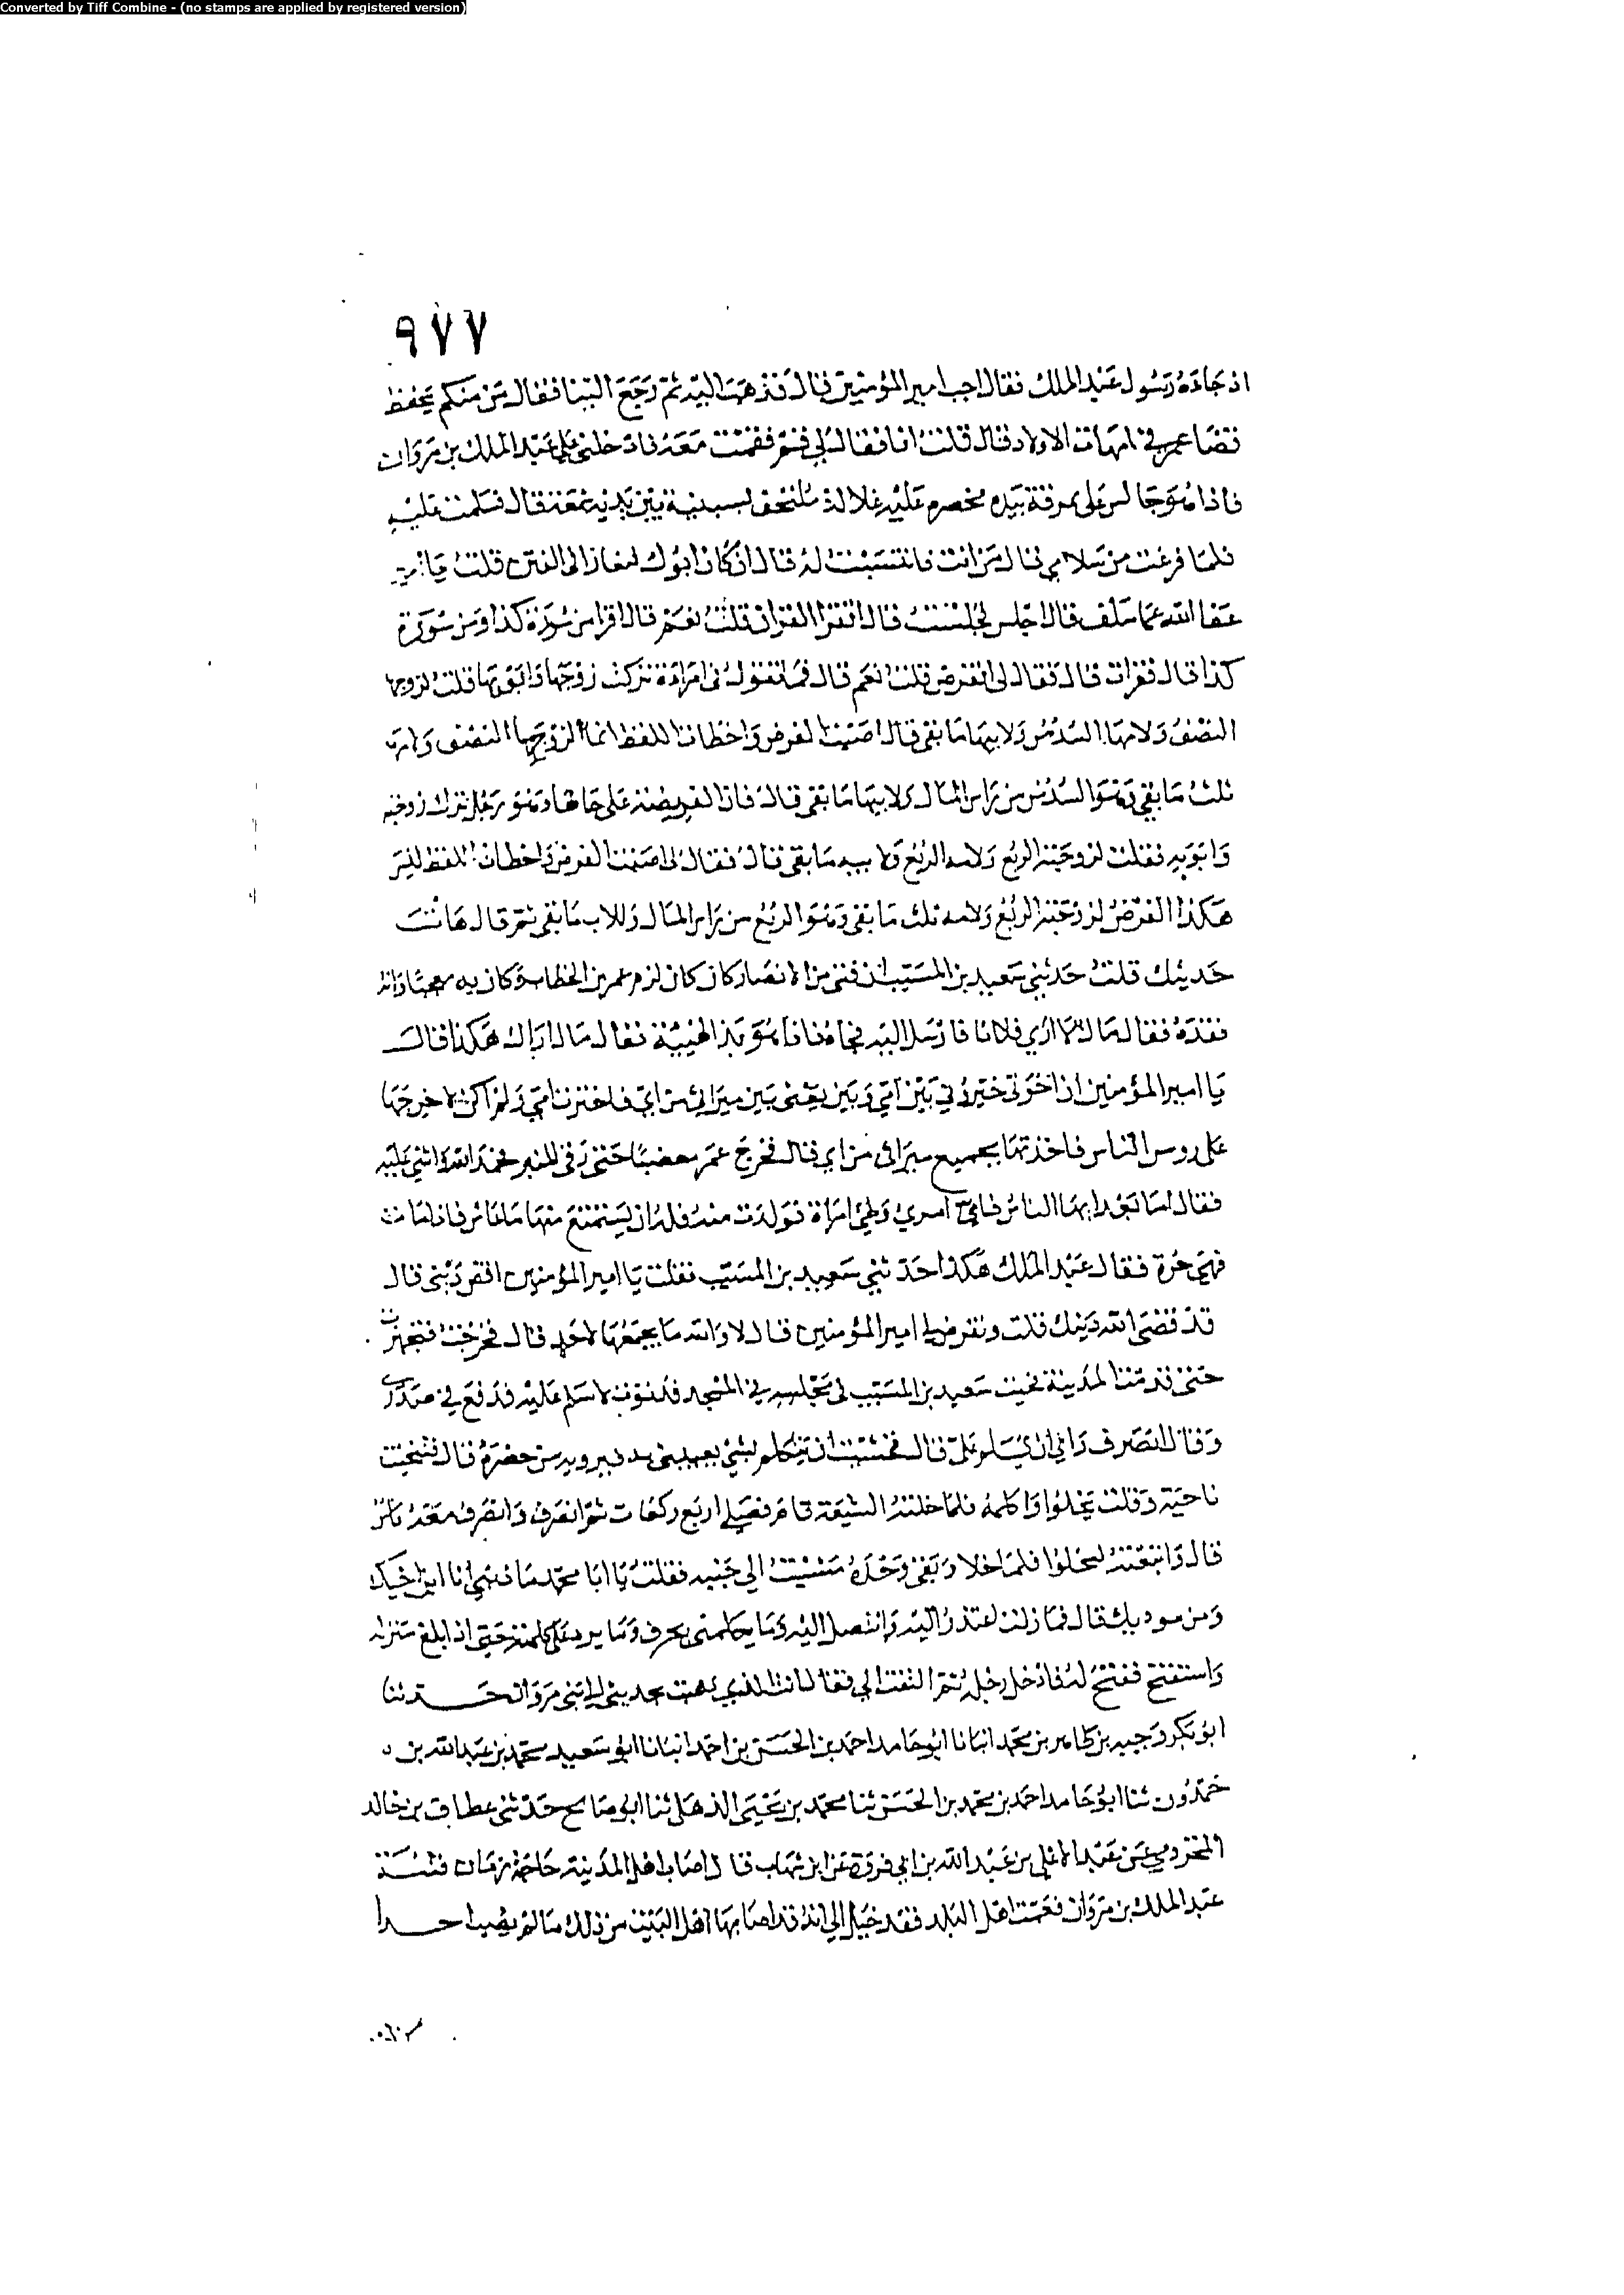 Converted by Tiff Combine - (no stamps are applied by registered version)
٩٧٧
اذ جاءه رسول عبد الملك فقال اجب امير المؤمنين قال فذهب اليه ثم رجع الينا فقال من منكم يحفظ
قضا عمر في امهات الاولاد قال قلت انا فقال لي قم فقمت معه فادخلني على عبد الملك بن مروان
فاذا هو جالس على نمرقة بيده مخصرة عليه غلالة ملتحف بسبنية بين يديه شمعة قال فسلمت عليه
فلما فرغت من سلامي قال من انت فانتسبت له قال ان كان ابوك لنعارا في الفتن قلت يا امير
عفا الله عما سلف قال اجلس فجلست قال اتقرا القران قلت نعم قال اقرا من سورة كذا ومن سورة
كذا قال فقرات قال فقال لي اتفرض قلت نعم قال فما تقول في امراة تركت زوجها وابويها قلت لزوجها
النصف ولامها السدس ولابيها ما بقي قال اصبت الفرض واخطات اللفظ انما لزوجها النصف ولامها
ثلث ما بقي وهو السدس من راس المال ولابيها ما بقي قال فان الفريضة على حالها وهو رجل ترك زوجته
وابويه فقلت لزوجته الربع ولامه الربع ولابيه ما بقي قال فقال لي اصبت الفرض واخطات اللفظ ليس
هكذا الفرض لزوجته الربع ولامه ثلث ما بقي وهو الربع من راس المال وللاب ما بقي ثم قال هات
حديثك قلت حدثني سعيد بن المسيب ان فتى من الانصار كان كان لزم عمر بن الخطاب وكان به معجبا وانه
فقده فقال ما لي لا ارى فلانا فارسل اليه فجاءه فاذا هو بذ الهيئة فقال ما لي اراك هكذا قال
يا امير المؤمنين ان اخوتي خيروني بين امي وبين يعني بين ميراثي من ابي فاخترت امي ولم اكن لاخرجها
على روس الناس فاخذتها بجميع ميراثي من ابي قال فخرج عمر مغضبا حتى رقى المنبر فحمد الله واثنى عليه
فقال اما بعد ايها الناس فايما امرئ وطئ امراة فولدت منه فله ان يستمتع منها ما عاش فاذا مات
فهي حرة فقال عبد الملك هكذا حدثني سعيد بن المسيب فقلت يا امير المؤمنين اقض ديني قال
قد قضى الله دينك قلت وتفرض لي امير المؤمنين قال لا والله ما يجمعها لاحد قال فخرجت فتجهزت
حتى قدمنا المدينة فجيت سعيد بن المسيب في مجلسه في المسجد فدنوت لاسلم عليه فدفع في صدري
وقال انصرف وابى ان يسلم علي قال فخشيت ان يتكلم بشي يعيبني به فيرويه من حضره قال فتنحيت
ناحية وقلت يخلوا واكلمه فلما خلته الشيعة قام فصلى اربع ركعات ثم انصرف وانصرف معه ناس
قال واتبعته ليخلوا فلما خلا وبقي وحده مشيت الى جنبه فقلت يا ابا محمد ما ذنبي انا ابن اخيك
قال فما زلت اعتذر اليه واتنصل اليه وما يكلمني بحرف وما يرد علي كلمة حتى اذا بلغ منزله
واستفتح ففتح له فادخل رجله ثم التفت الي فقال انت الذي ذهبت بحديثي الى بني مروان حدثنا
ابو بكر وجيه بن طاهر بن محمد انبانا ابو حامد احمد بن الحسن بن احمد انبانا ابو سعيد محمد بن عبد الله بن
حمدون ثنا ابو حامد احمد بن محمد بن الحسن ثنا محمد بن يحيى الذهلي ثنا ابو صالح حدثني عطاف بن خالد
المخزومي عن عبد الاعلى بن عبد الله بن ابي فروة عن ابن شهاب قال اصاب اهل المدينة حاجة زمان فتنة
عبد الملك بن مروان فعمت اهل البلد فقد خيل الي انه قد اصابها اهل البيت من ذلك ما لم يصب احدا